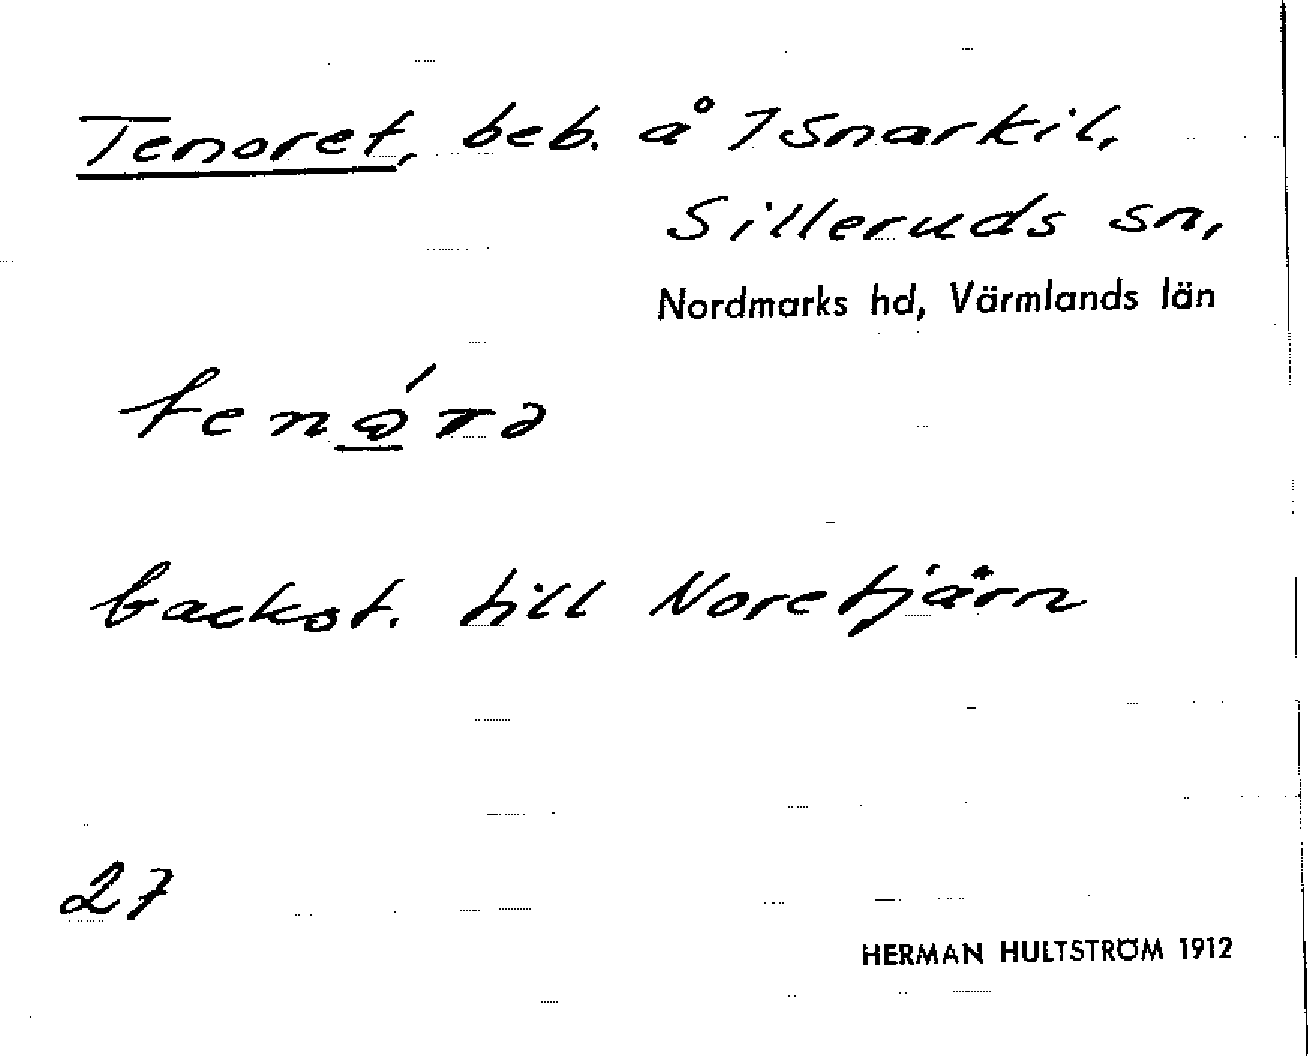 Tenoret, beb. å Isnarkil,
Silleruds sn,
Nordmarks hd, Värmlands län
backst. till Noretjärn
27
HERMAN HULTSTRÖM 1912